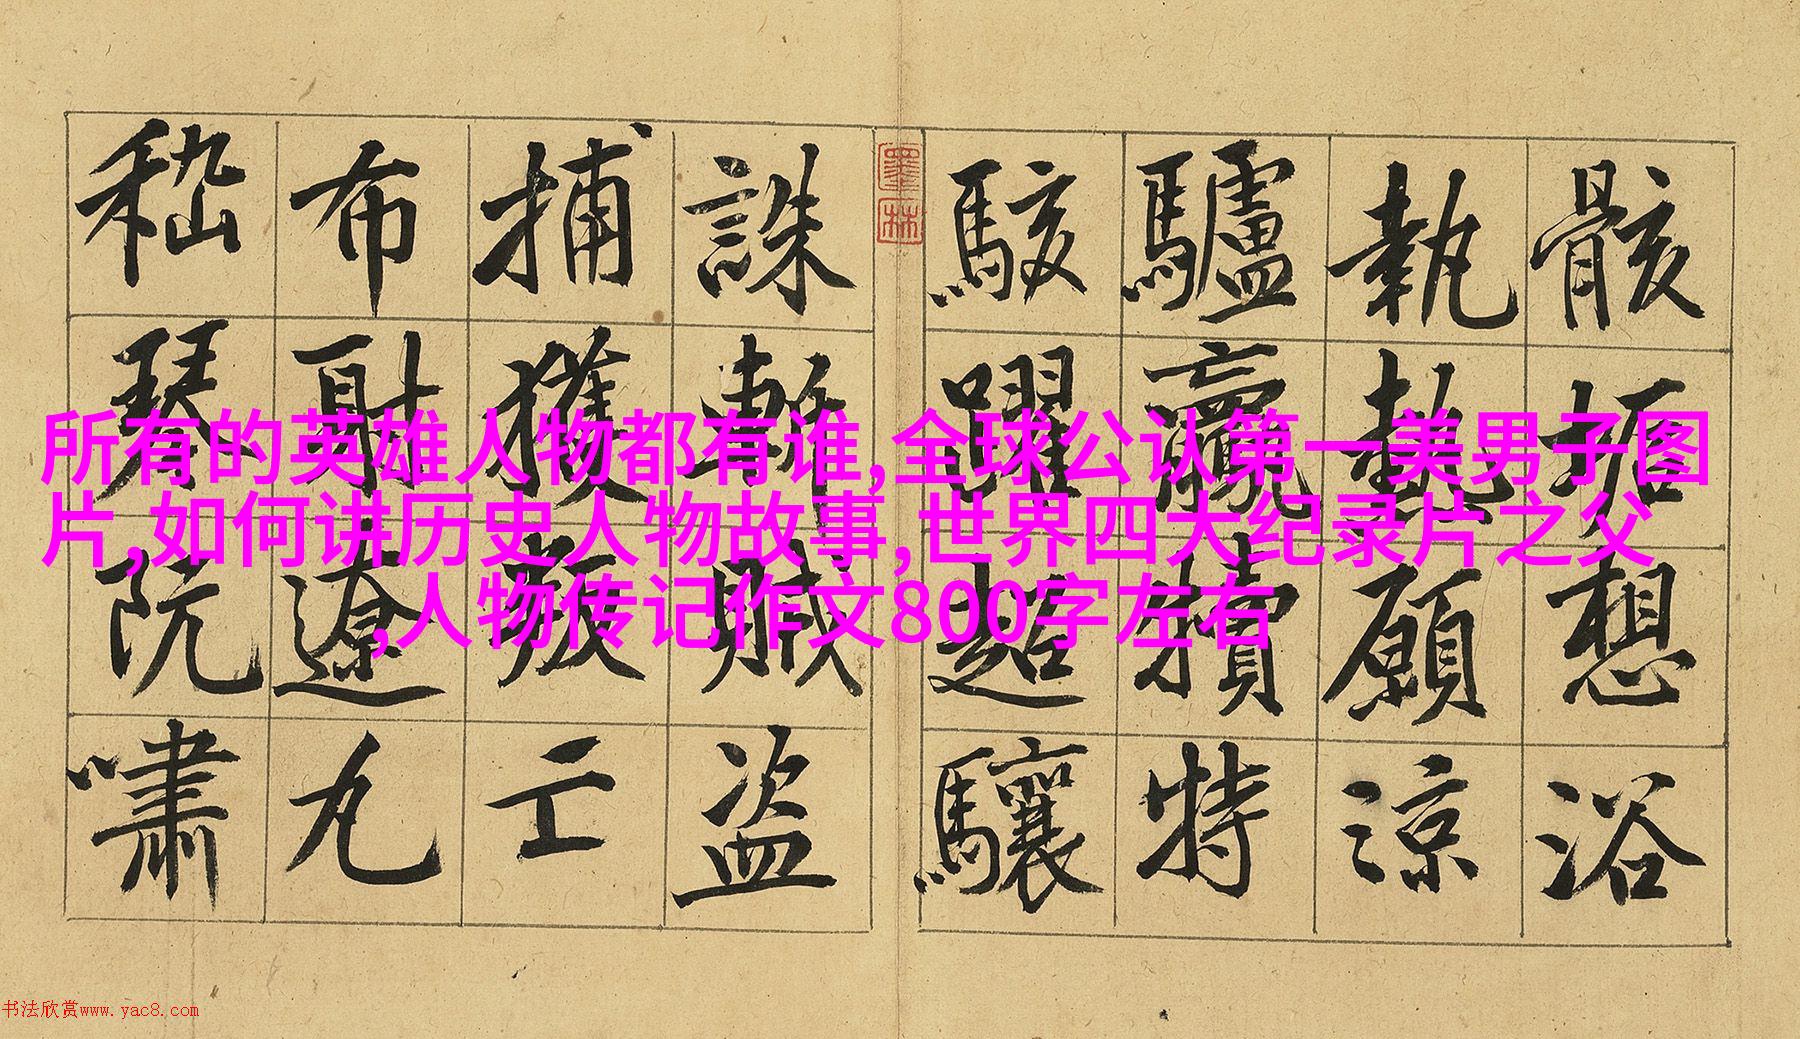 骸垢想浴
執熱願涼
驢驘犢特
駭躍超驤
墨林
誅斬賊盜
捕獲叛亡
布射遼丸
嵇琴阮嘯
所有的英雄人物都有谁,全球公认第一美男子图
片,如何讲历史人物故事,世界四大纪录片之父
,人物传记作文800字左右
书法欣赏www.yac8.com